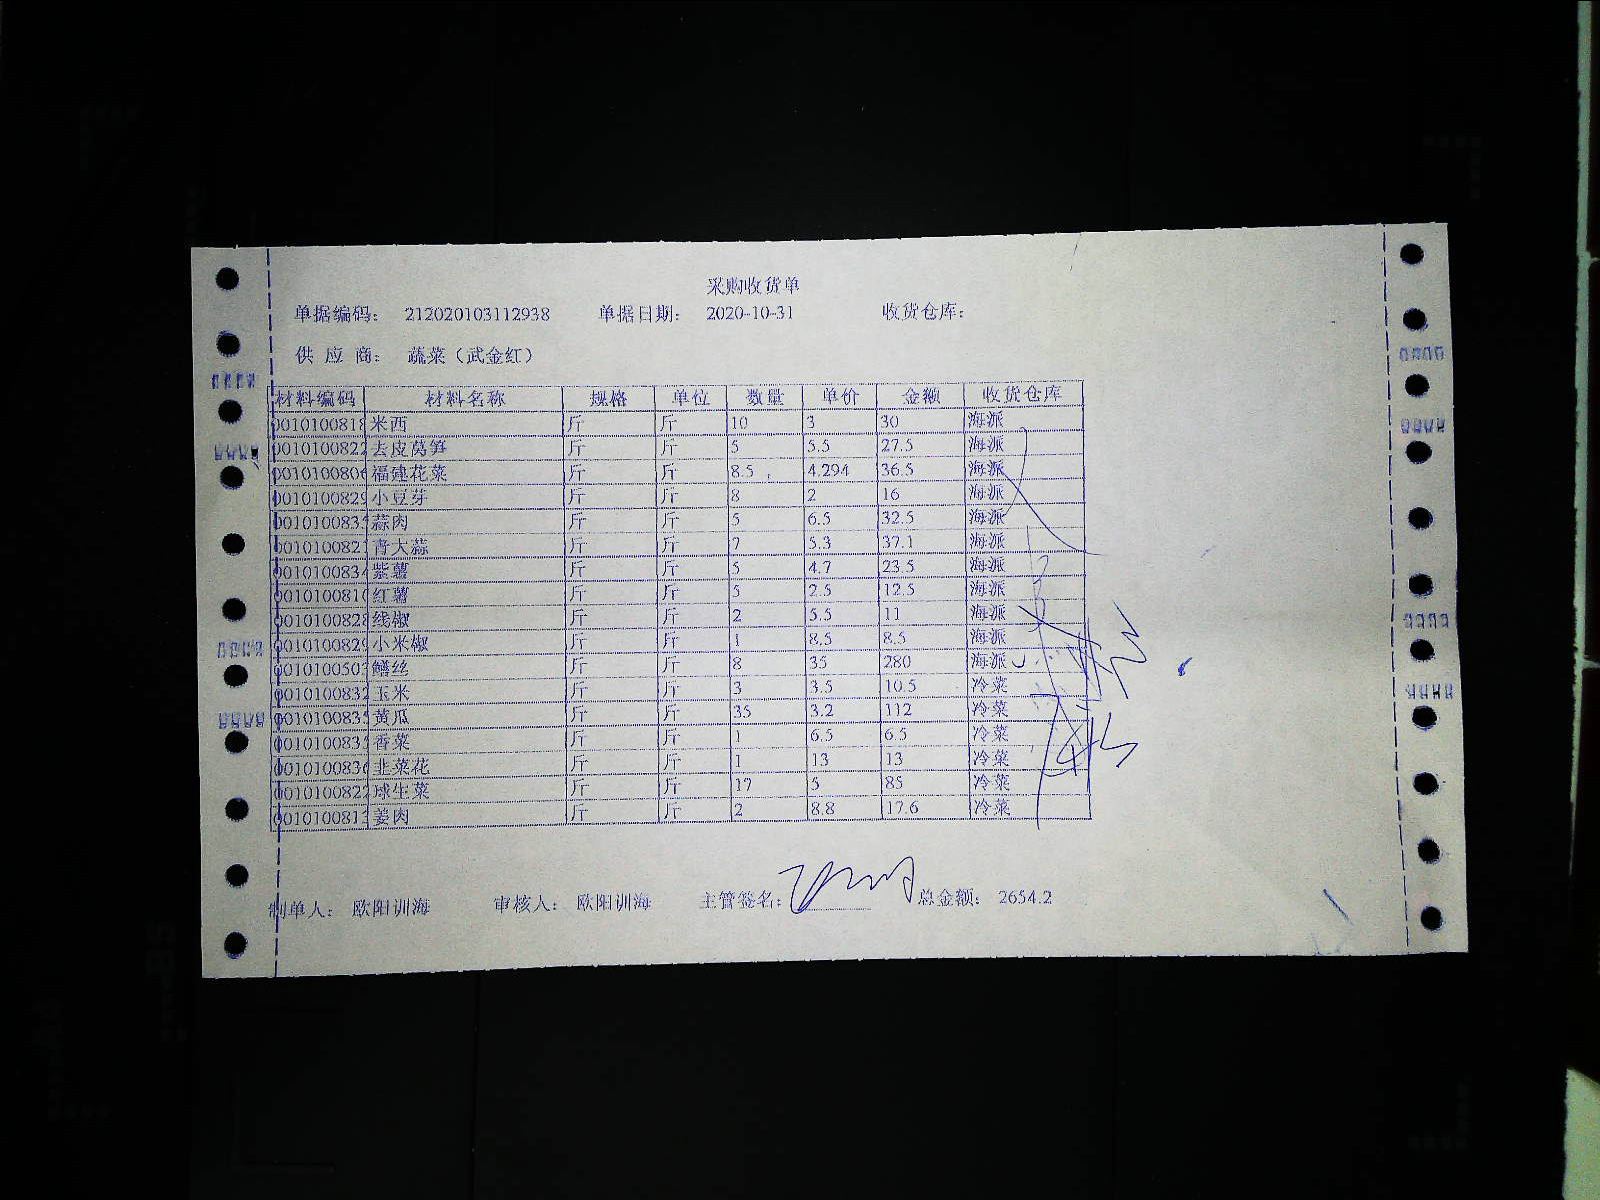 采购收货单
单据编码： 212020103112938 单据日期： 2020-10-31 收货仓库：
供 应 商： 蔬菜（武金红）
材料编码 材料名称 规格 单位 数量 单价 金额 收货仓库
001010081 米西 斤 斤 10 3 30 海派
001010082 去皮莴笋 斤 斤 5 5.5 27.5 海派
001010080 福建花菜 斤 斤 8.5 4.294 36.5 海派
001010082 小豆芽 斤 斤 8 2 16 海派
001010083 蒜肉 斤 斤 5 6.5 32.5 海派
001010082 青大蒜 斤 斤 7 5.3 37.1 海派
001010083 紫薯 斤 斤 5 4.7 23.5 海派
001010081 红薯 斤 斤 5 2.5 12.5 海派
001010082 线椒 斤 斤 2 5.5 11 海派
001010082 小米椒 斤 斤 1 8.5 8.5 海派
001010050 鳝丝 斤 斤 8 35 280 海派
001010083 玉米 斤 斤 3 3.5 10.5 冷菜
001010083 黄瓜 斤 斤 35 3.2 112 冷菜
001010083 香菜 斤 斤 1 6.5 6.5 冷菜
001010083 韭菜花 斤 斤 1 13 13 冷菜
001010082 球生菜 斤 斤 17 5 85 冷菜
001010081 姜肉 斤 斤 2 8.8 17.6 冷菜
制单人： 欧阳训海 审核人： 欧阳训海 主管签名： 总金额： 2654.2